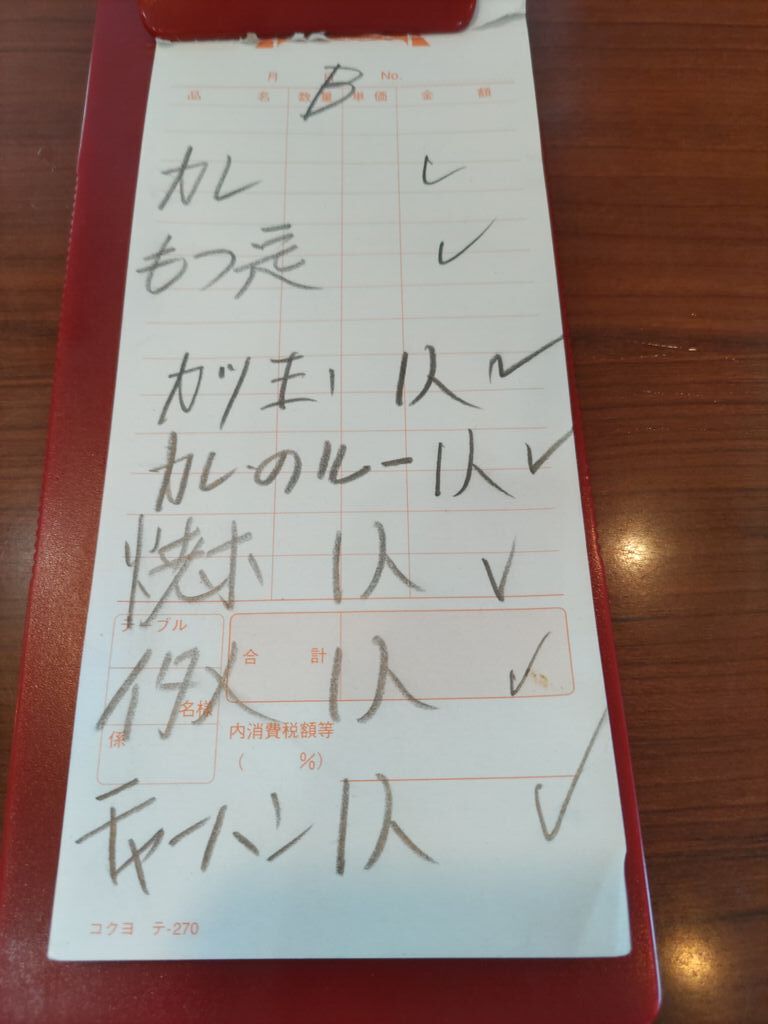 月 B No.
品 名 数量 単価 金 額
カレ ✓
もつ定 ✓
カツ 1人 ✓
カレーのルー 1人 ✓
焼ホ 1人 ✓
テーブル
合 計
イタメ 1人 ✓
名様
係
内消費税額等
( %)
チャーハン 1人 ✓
コクヨ テ-270